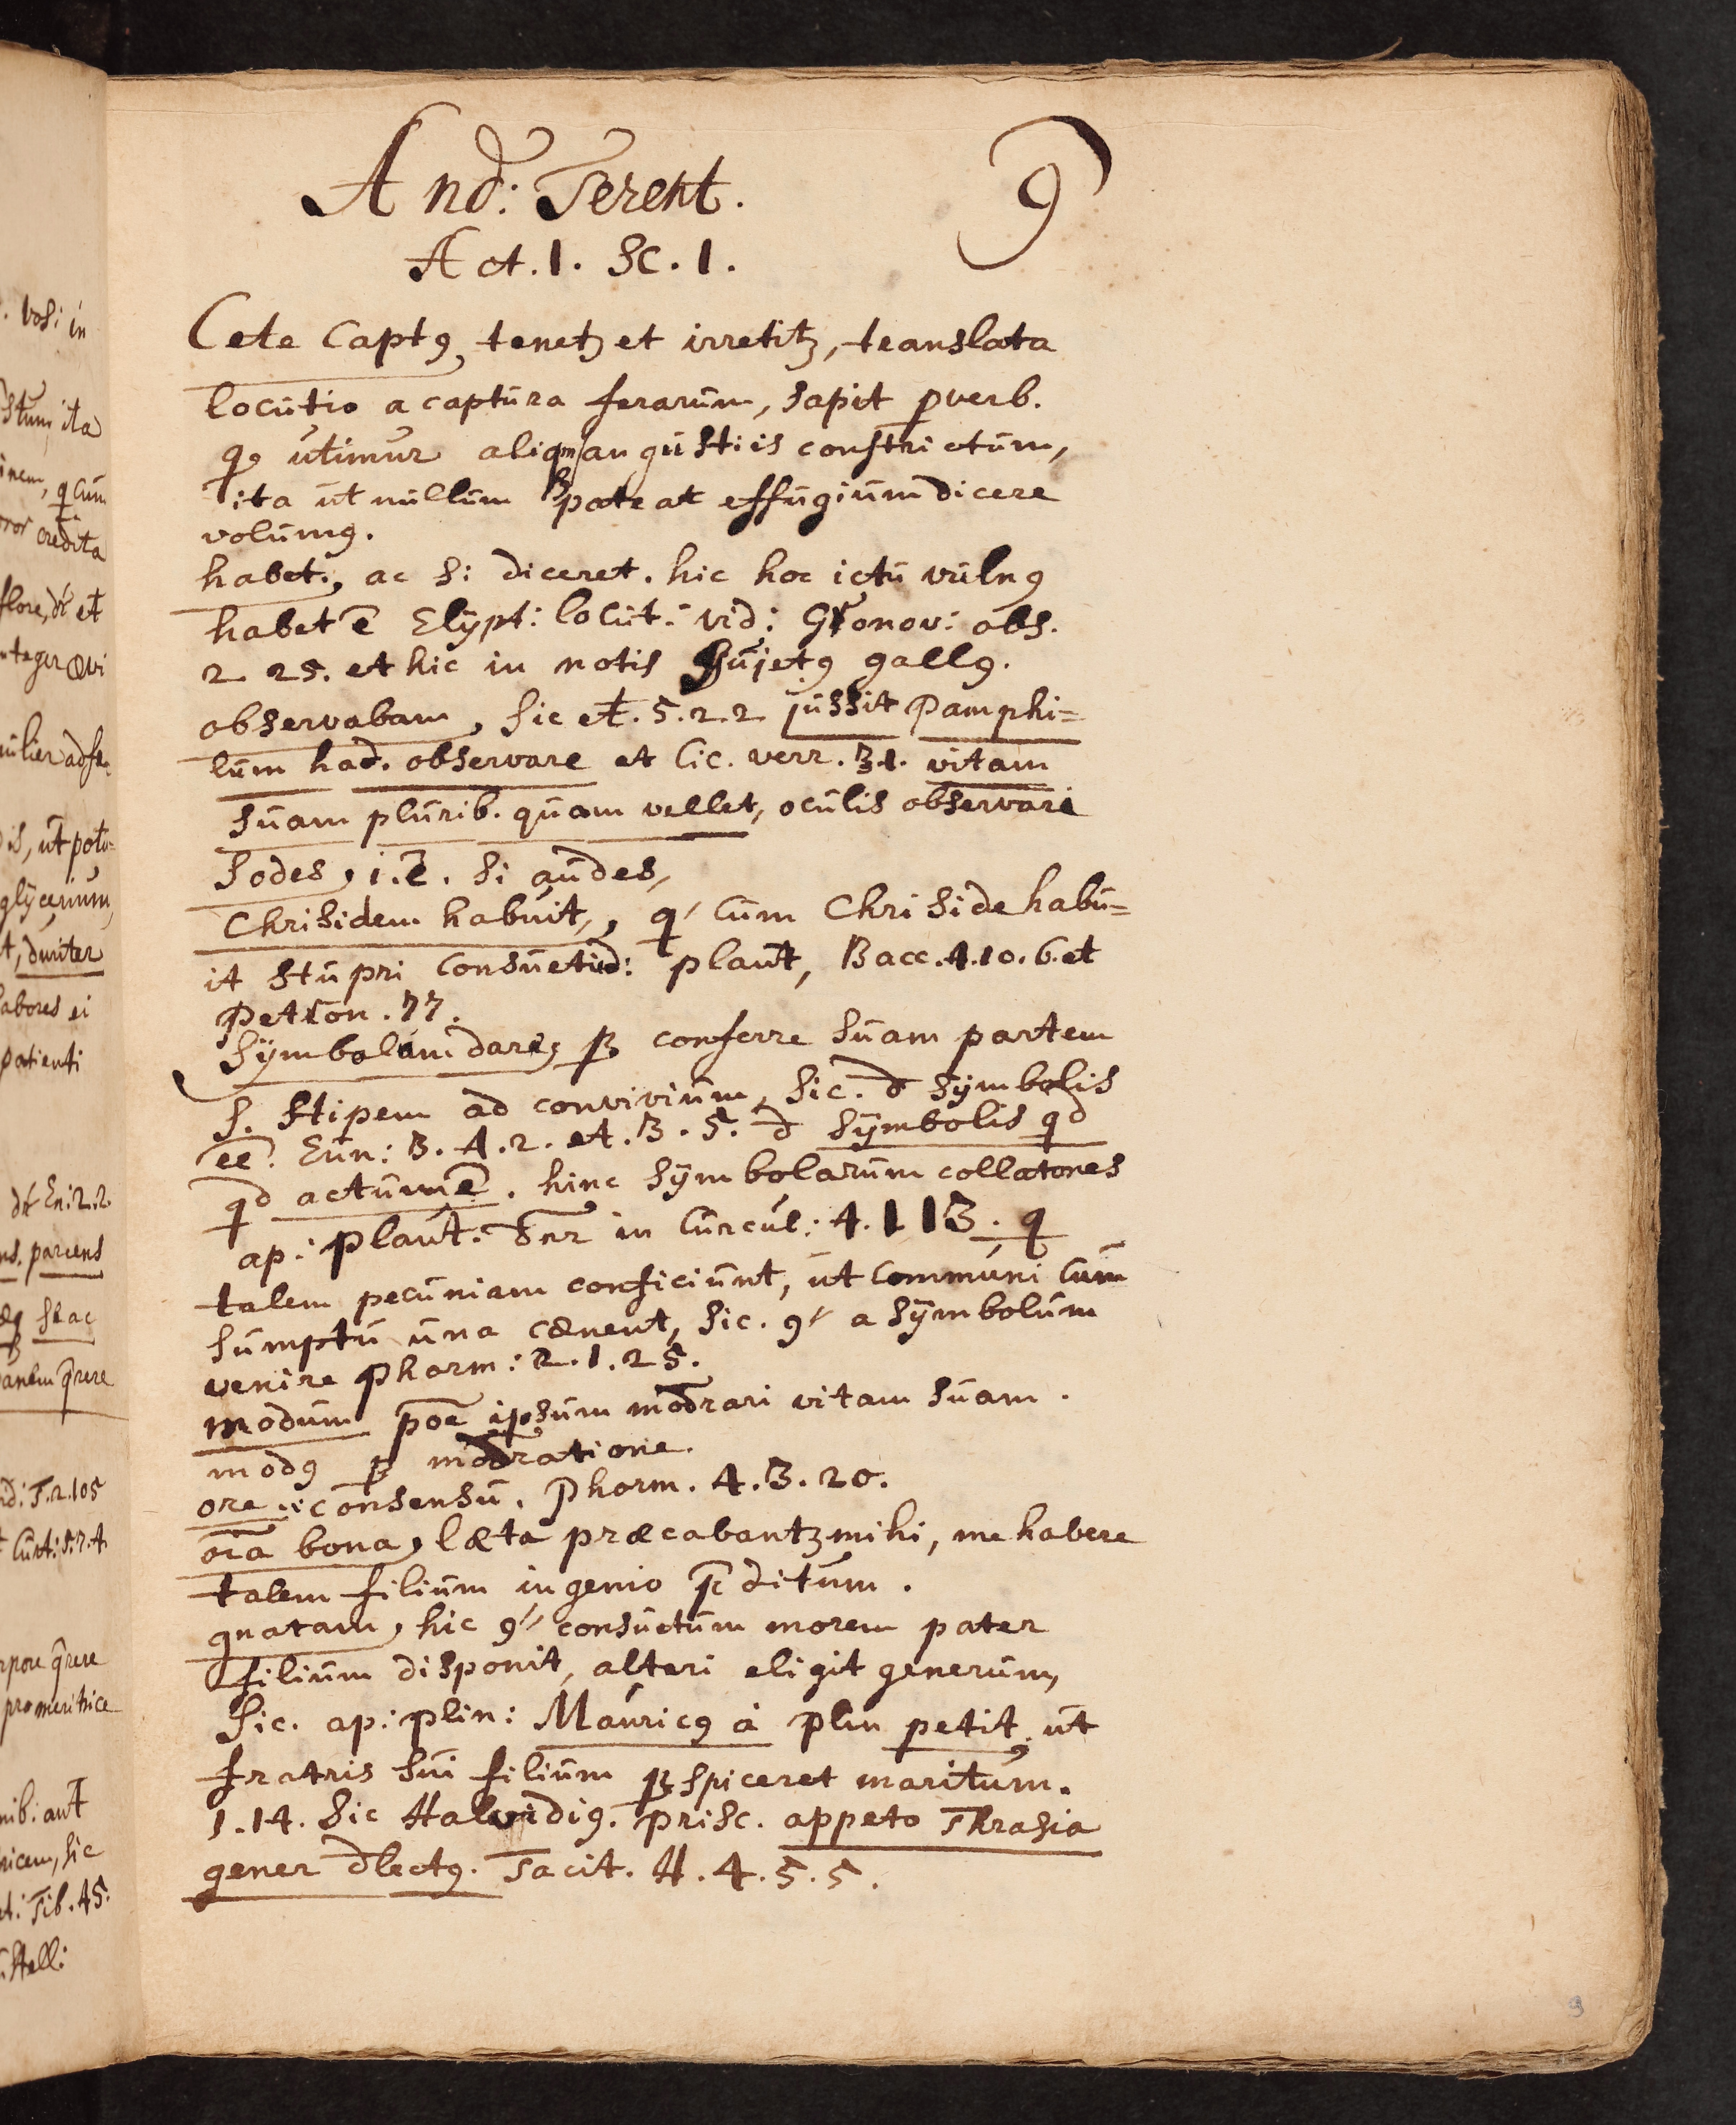 And: Terent. 9
Act. 1. Sc. 1.
Cete Captꝯ, tenetꝫ et irretitꝫ, translata
locutio a captura ferarum, sapit ꝓverb.
qꝫ utimur aliqm angustiis constrictum,
ita ut nullum pateat effugium dicere
volumꝯ.
habet., ac si diceret. hic hoc ictu vulnꝯ
habet ē Elÿpt: locut: vid: Gronov: obs.
2 25. et hic in notis Gujetꝯ gallꝯ.
observabam, sic et. 5.2.2 jussit Pamphi=
lum had. observare et Cic. verr. 31. vitam
suam plurib. quam vellet, oculis observari
Sodes, i.ē. si audes,
Chrisidem habuit, q cum Chriside habu=
it stupri consuetud: plaut, Bacc. 4.10.6. et
Petron. 77.
Sÿmbolam dare, ꝑ conferre suam partem
s. stipem ad convivium, sic. d sÿmbolis
ēē. Eun: 3. 4. 2. et. 3. 5. d sÿmbolis qd
qd actum ē. hinc sÿmbolarum collatores
ap: plaut. in Curcul: 4. 1 13. q
talem pecuniam conficiunt, ut communi cum
sumptu una cænent, sic. a sÿmbolum
venire Phorm: 2. 1. 25.
modum poē ipsum modrari vitam suam.
modꝯ ꝑ modratione.
ore :: consensu. Phorm. 4. 3. 20.
oīa bona, læta præcabantꝫ mihi, me habere
talem filium ingenio p̄ditum.
gnatam, hic consuetum morem pater
filium disponit, alteri eligit generum,
Sic. ap: plin: Mauricꝯ à plin petit, ut
fratris sui filium ꝑspiceret maritum.
1. 14. Sic Halvidiꝯ. prisc. appeto Thrasia
gener dlectꝯ. Tacit. H. 4. 5. 5.
9